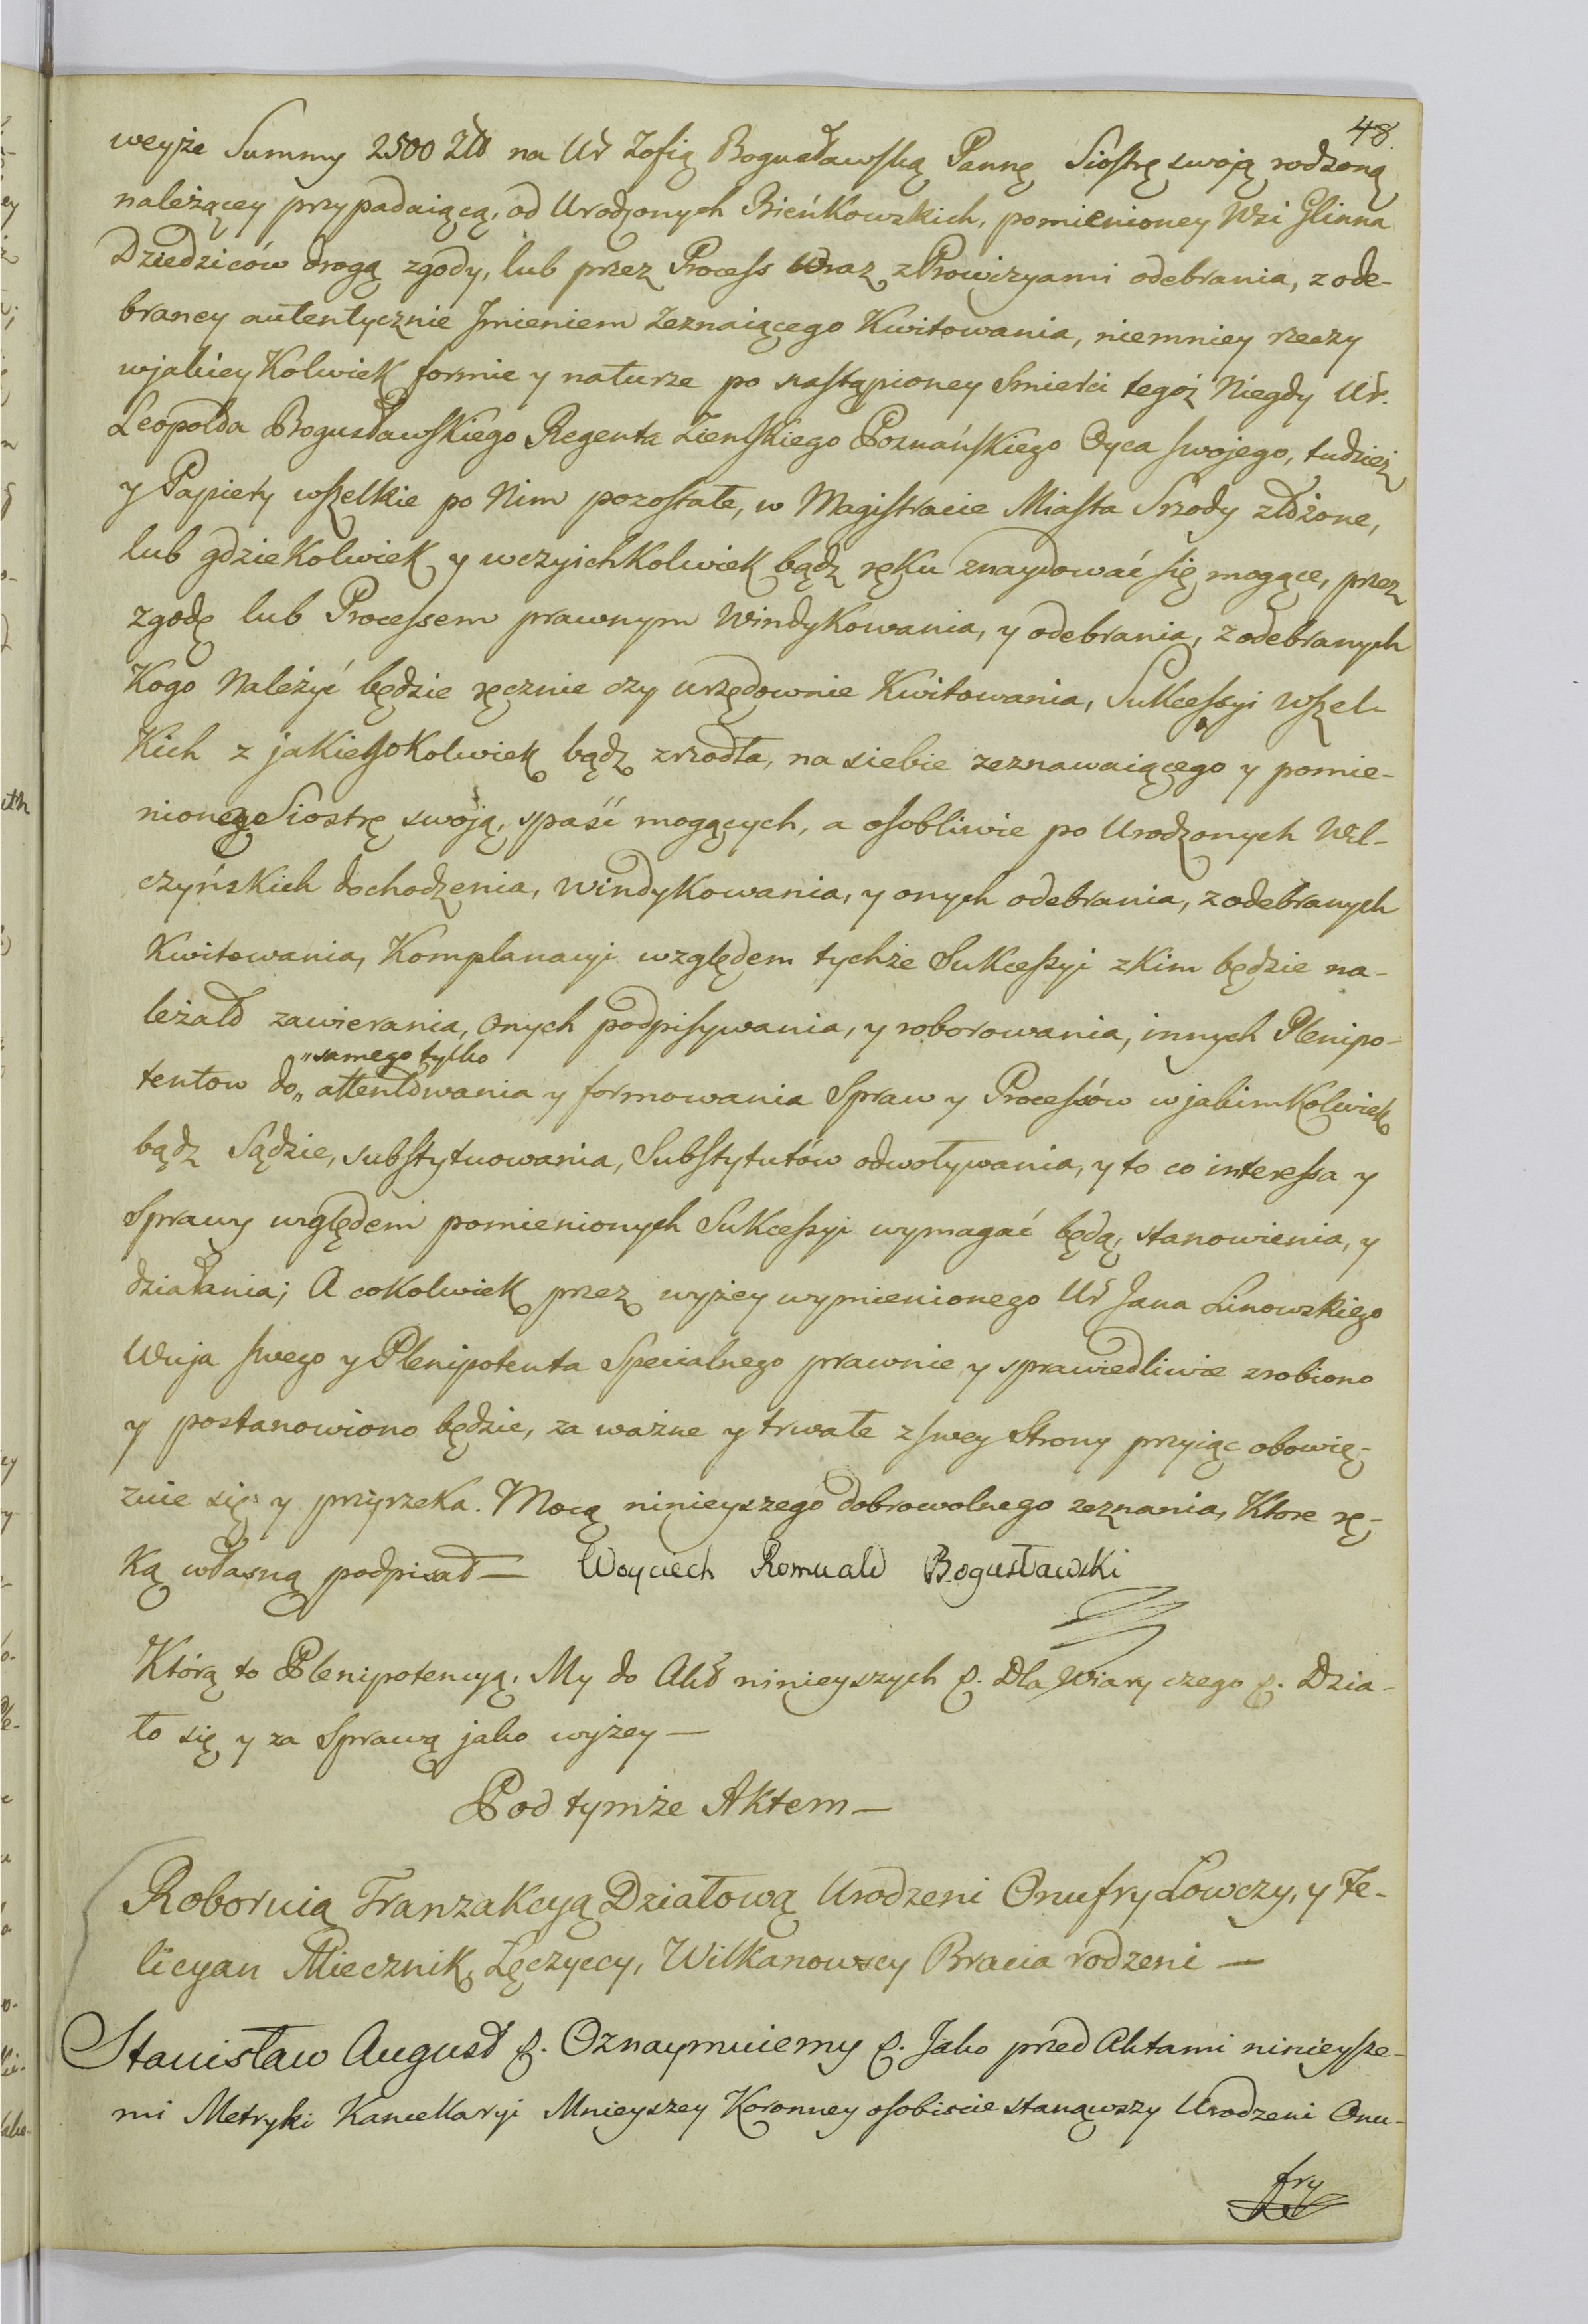 48.
weyże Summy 2500 Złł na Ur Zofią Bogusławską Pannę Siostrę swoją rodzoną
należącey przypadaiącą, od Urodzonych Bieńkowskich, pomienioney Wsi Glinna
Dziedziców drogą zgody, lub przez Process wraz z Prowizyami odebrania, z ode-
braney autentycznie Jmieniem Zeznaiącego Kwitowania, niemniey rzeczy
w jakiey Kolwiek formie y naturze po nastąpioney Smierci tegoż Niegdy Ur.
Leopolda Bogusławskiego Regenta Ziemskiego Poznańskiego Oyca swojego, tudzież
y Papiery wszelkie po Nim pozostałe, w Magistracie Miasta Srzody złożone,
lub gdziekolwiek y w czyichkolwiek bądz ręku znaydować się mogące, przez
zgodę lub Processem prawnym Windykowania, y odebrania, z odebranych
Kogo Należyć będzie ręcznie czy urzędownie Kwitowania, Sukcessyi wszel-
kich z jakiegokolwiek bądz zrzodła, na siebie zeznawaiącego y pomie-
nionego Siostrę swoją, spaść mogących, a osobliwie po Urodzonych Wil-
czyńskich dochodzenia, windykowania, y onych odebrania, z odebranych
Kwitowania, Komplanacyi względem tychże Sukcessyi z kim będzie na-
leżało zawierania, onych podpisywania, y roborowania, innych Plenipo-
„samego tylko
tentow do„ attentowania y formowania Spraw y Processów w jakimkolwiek
bądz Sądzie, substytuowania, Substytutów odwoływania, y to co interessa y
Sprawy względem pomienionych Sukcessyi wymagać będą, stanowienia, y
działania; A cokolwiek przez wyżey wymienionego Ur Jana Linowskiego
Wuja swego y Plenipotenta Specialnego prawnie y sprawiedliwie zrobiono
y postanowiono będzie, za ważne y trwałe z swey Strony przyiąc obowię-
zuie się y przyrzeka. Mocą ninieyszego dobrowolnego zeznania, Ktore rę-
ką własną podpisał — Woyciech Romuald Bogusławski
Którą to Plenipotencyą, My do Akt ninieyszych &. Dla Wiary czego &. Dzia-
ło się y za Sprawą jako wyżey —
Pod tymże Aktem —
Roboruią Tranzakcyą Działową Urodzeni Onufry Łowczy, y Fe-
licyan Miecznik, Łęczyccy, Wilkanowscy Bracia rodzeni —
Stanisław August &. Oznaymuiemy &. Jako przed Aktami ninieysze-
mi Metryki Kancellaryi Mnieyszey Koronney osobiscie stanąwszy Urodzeni Onu-
fry